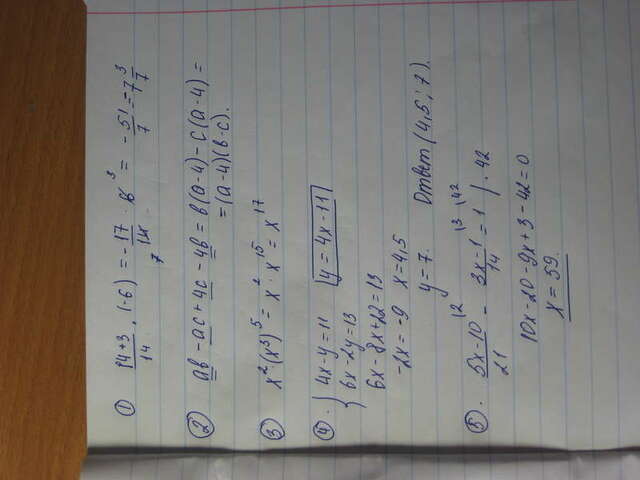 ① 14+3/14 · (-6) = -17/14 · 6 ³ = -51/7 = 7 3/7
7
② ab - ac + 4c - 4b = b(a-4) - c(a-4) =
= (a-4)(b-c).
③ x²·(x³)⁵ = x²·x¹⁵ = x¹⁷
④. { 4x-y=11 | y=4x-11 |
{ 6x-2y=13
6x-8x+22=13
-2x=-9 x=4,5
y=7. Ответ (4,5; 7).
⑤. 5x-10/21 |2 - 3x-1/14 |3 = 1 |42 | ·42
10x-20-9x+3-42=0
x=59.